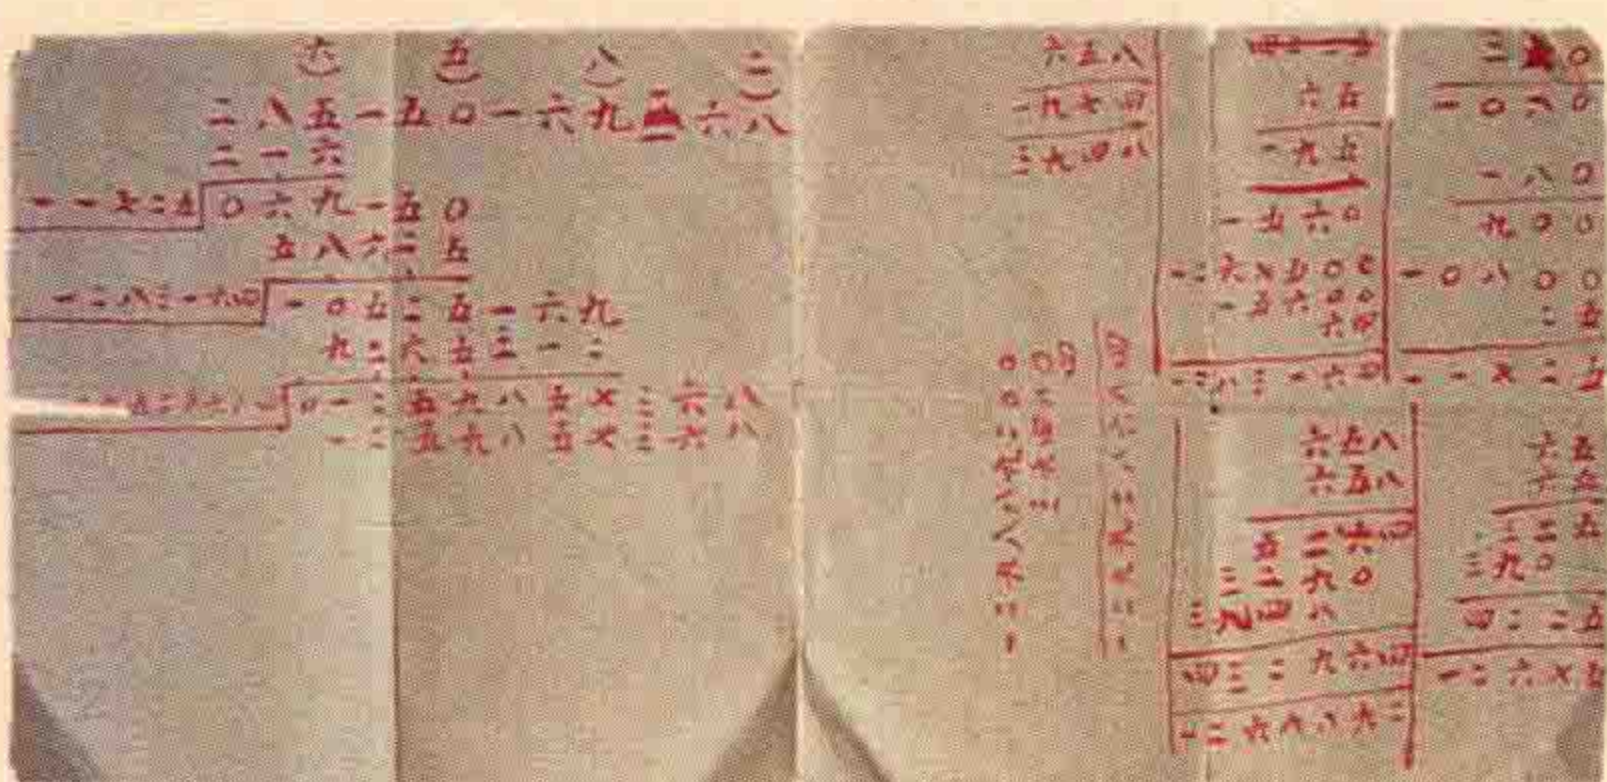 (六) (五) (八) (二)
二八五一五〇一六九三六八
二一六
一一七二五 〇六九一五〇
五八六二五
一二八三一六四 一〇五二五一六九
九二六五三一二
〇一二五九八五七三六八
一二五九八五七三六八
六五八
一九七四
三九四八
六五
一九五
一五六〇
一二六七五〇〇
一五六〇〇
六四
一二八三一六四
一〇八〇
一八〇
九〇〇
一〇八〇〇
二五
一一七二五
六五八
六五八
五二六四
三二九〇
三九四八
四三二九六四
一二九八八九二
六五
六五
三二五
三九〇
四二二五
一二六七五